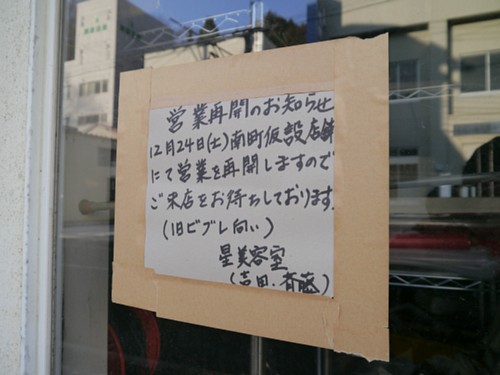 営業再開のお知らせ
12月24日(土)南町仮設店舗
にて営業を再開しますので
ご来店をお待ちしております。
(旧ビブレ向い)
星美容室
(吉田・斉藤)